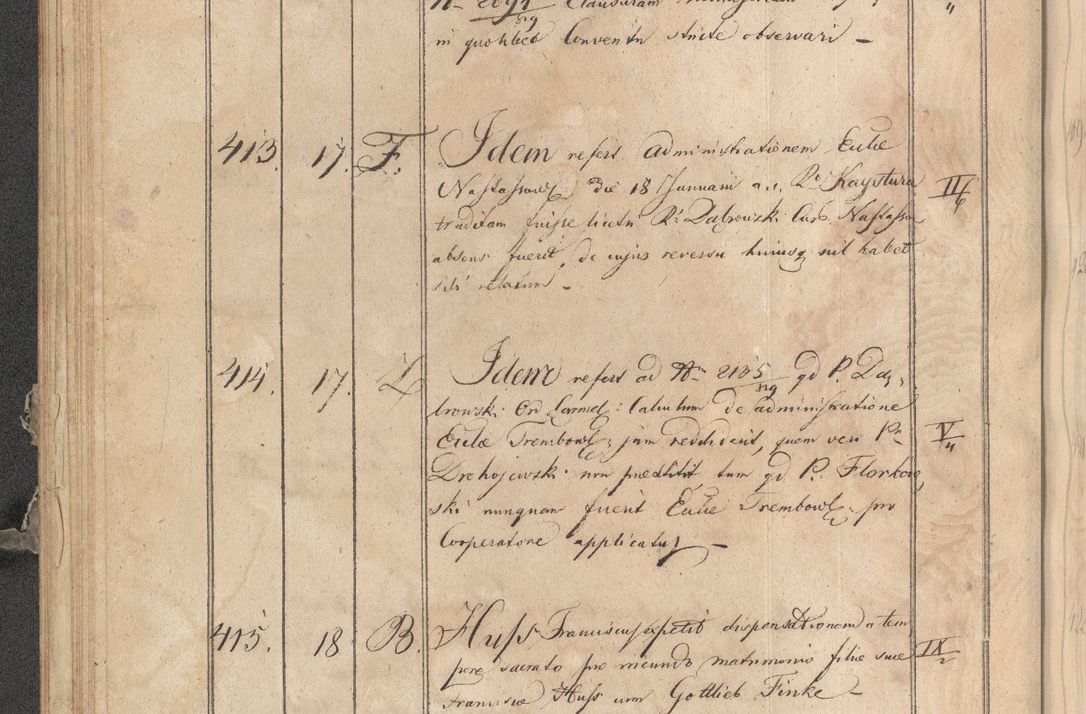 in quolibet Conventu stricte observari –
413. 17. F. Idem refert administrationem Eccliæ
Nastassow: die 18 Januarii a. c. Rdo Kaystura II/6
traditam fuisse licet Rs Dąbrowski Curs Nastasso
absens fuerit, de cujus reversu hucusq nil habet
sibi relatum –
414. 17. Z Idem refert ad Nm 2105 qd P. Dą,
browski Ord Carmel: Calculum de administratione V/4
Eccliæ Trembowl: jam reddiderit, quem vero Pr
Drohojewski non præstitit, tum qd P. Florkow,
ski nunquam fuerit Eccliæ Trembowl: pro
Corperatore applicatus –
415. 18 B. Huss Franciscus expetit dispensationem a tem
pore sacrato pro ineundo matrimonio filiæ suæ IX/2
Franciscæ Huss cum Gottlieb Finke –